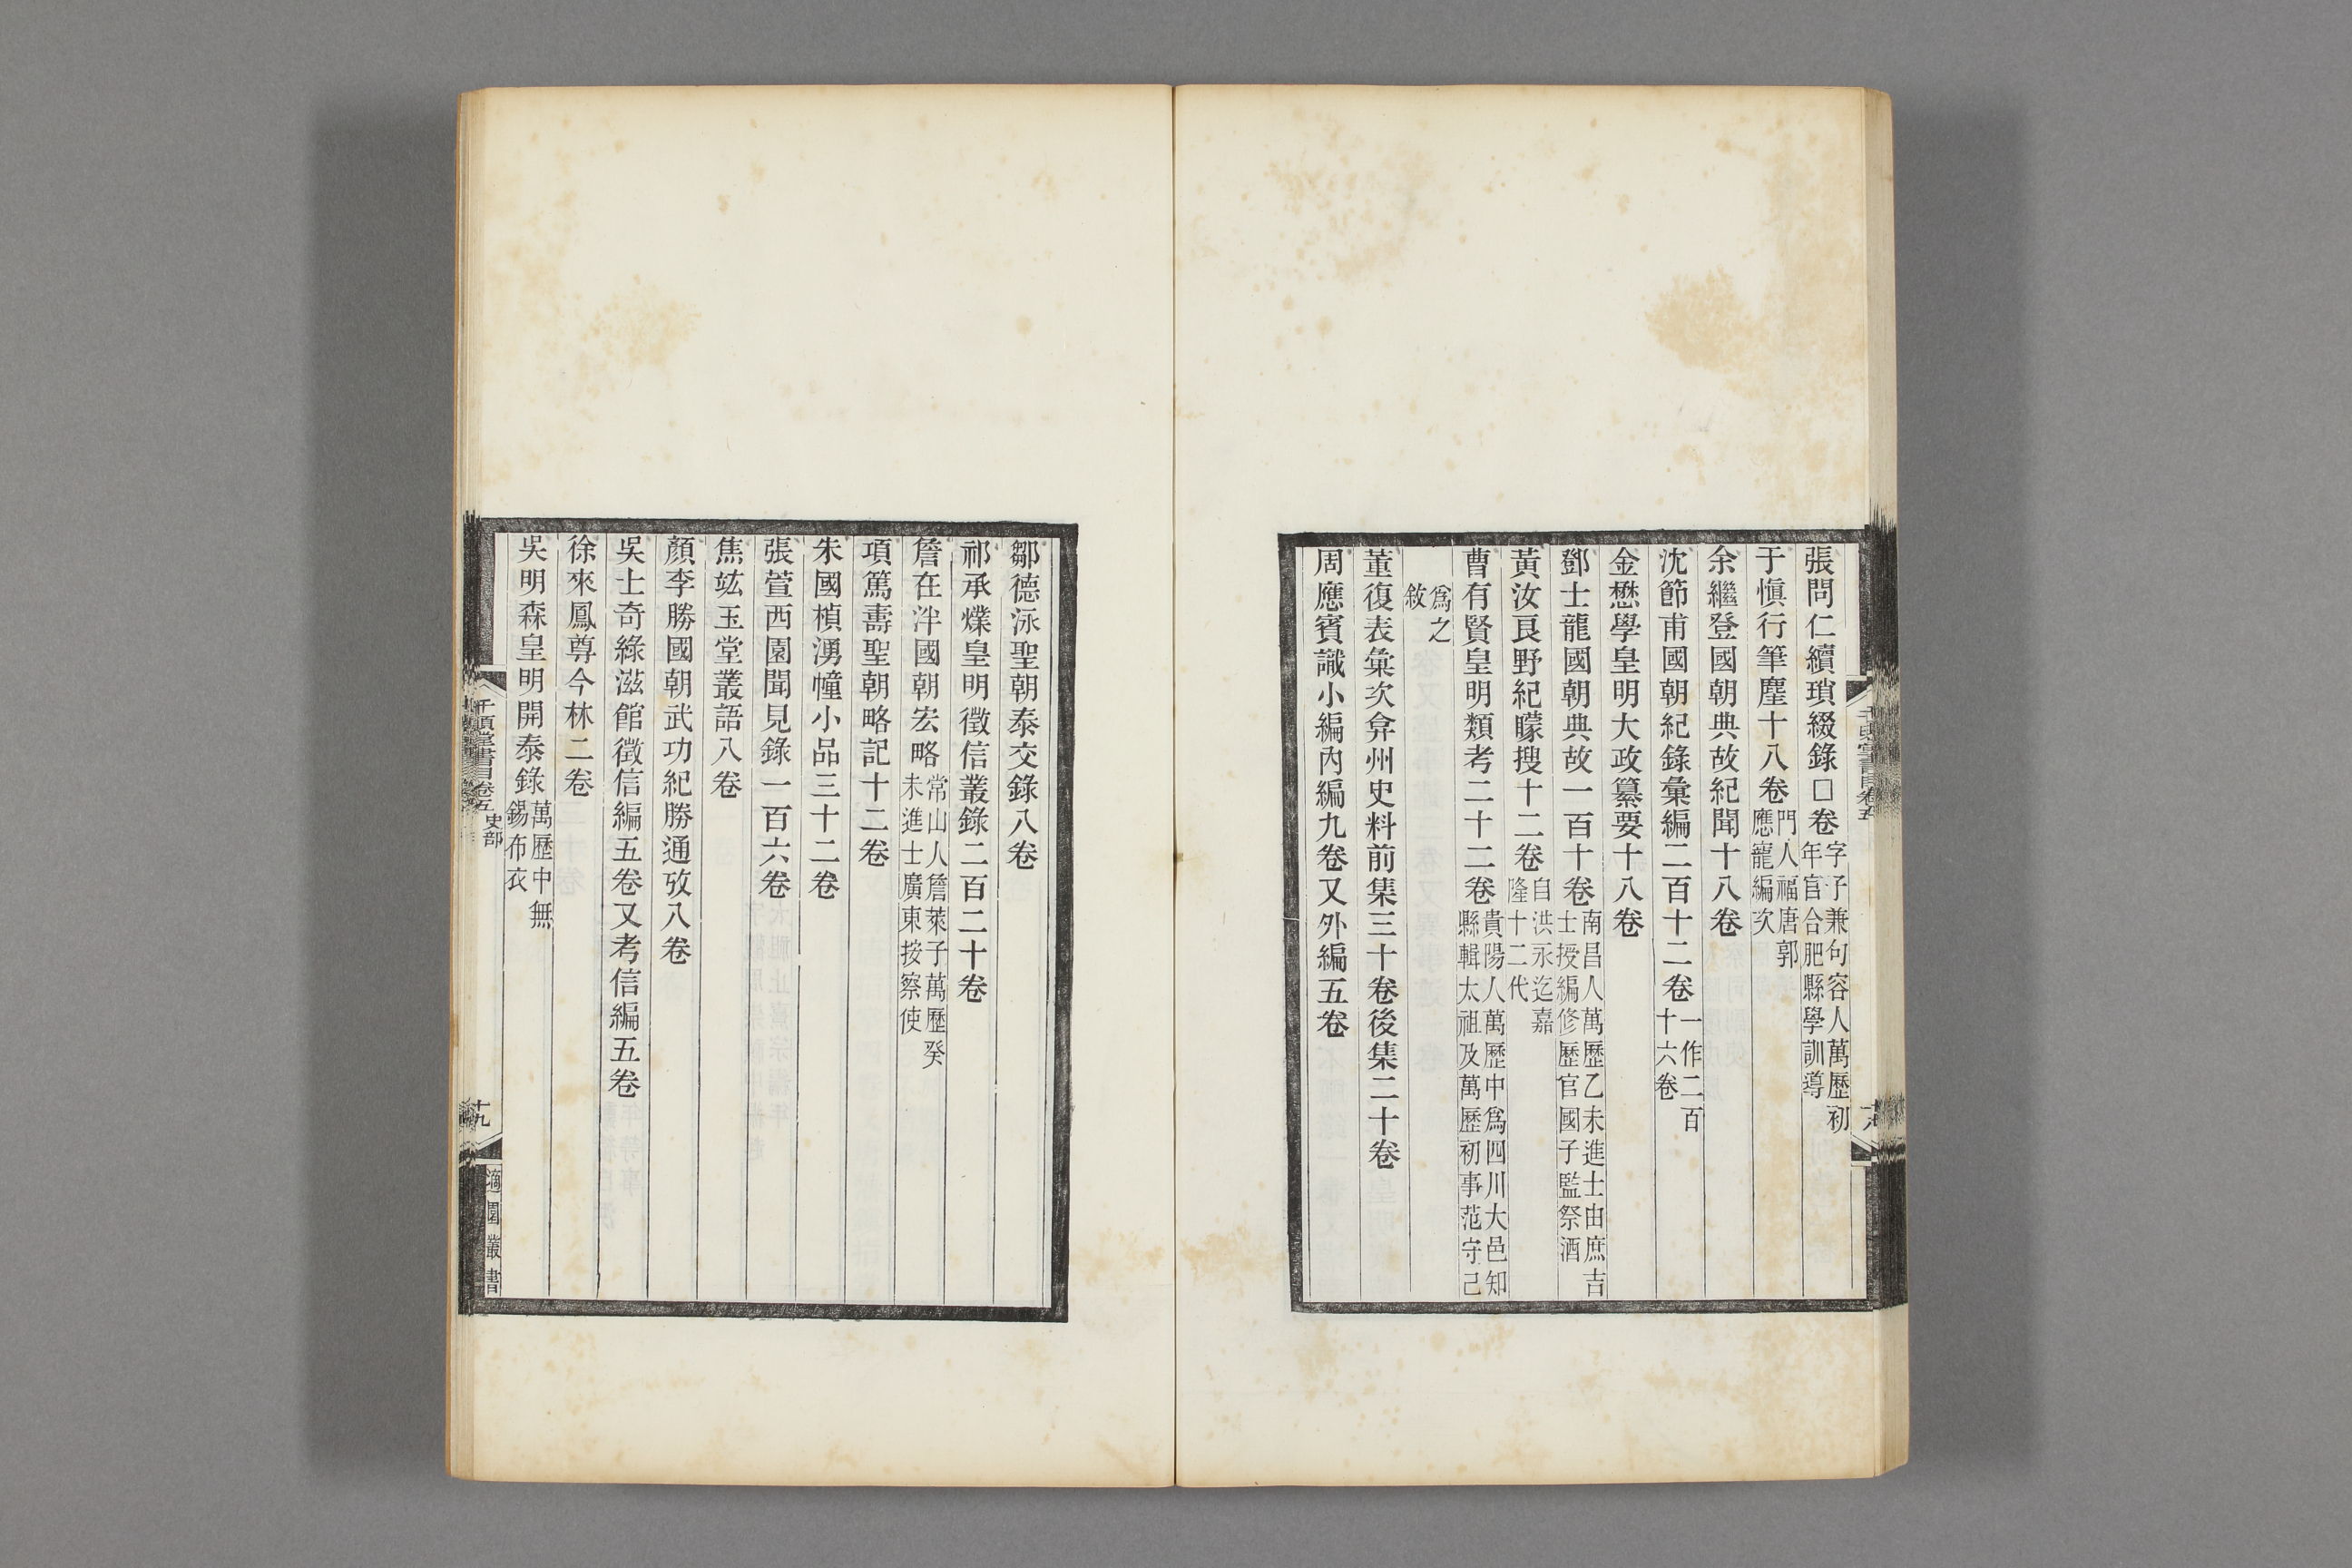 張問仁續瑣綴錄□卷字子兼句容人萬歷初
年官合肥縣學訓導
于慎行筆麈十八卷門人福唐郭
應寵編次
余繼登國朝典故紀聞十八卷
沈節甫國朝紀錄彙編二百十二卷一作二百
十六卷
金懋學皇明大政纂要十八卷
鄧士龍國朝典故一百十卷南昌人萬歷乙未進士由庶吉
士授編修歷官國子監祭酒
黃汝良野紀矇搜十二卷自洪永迄嘉
隆十二代
曹有賢皇明類考二十二卷貴陽人萬歷中為四川大邑知
縣輯太祖及萬歷初事范守己
為之
敘
董復表彙次弇州史料前集三十卷後集二十卷
周應賓識小編內編九卷又外編五卷
鄒德泳聖朝泰交錄八卷
祁承㸁皇明徵信叢錄二百二十卷
詹在泮國朝宏略常山人詹萊子萬歷癸
未進士廣東按察使
項篤壽聖朝略記十二卷
朱國楨湧幢小品三十二卷
張萱西園聞見錄一百六卷
焦竑玉堂叢語八卷
顏季勝國朝武功紀勝通攷八卷
吳士奇綠滋館徵信編五卷又考信編五卷
徐來鳳尊今林二卷
吳明森皇明開泰錄萬歷中無
錫布衣
千頃堂書目卷五 史部
十九
適園叢書